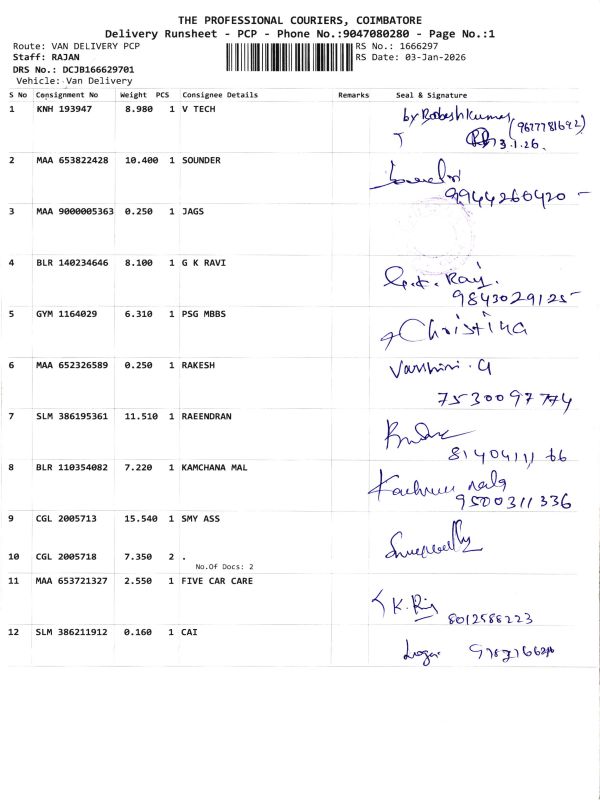 THE PROFESSIONAL COURIERS, COIMBATORE
Delivery Runsheet - PCP - Phone No.:9047080280 - Page No.:1
Route: VAN DELIVERY PCP RS No.: 1666297
Staff: RAJAN RS Date: 03-Jan-2026
DRS No.: DCJB166629701
Vehicle: Van Delivery
S No Consignment No Weight PCS Consignee Details Remarks Seal & Signature
1 KNH 193947 8.980 1 V TECH
(9677781692)
3.1.26.
2 MAA 653822428 10.400 1 SOUNDER
9944260420
3 MAA 9000005363 0.250 1 JAGS
4 BLR 140234646 8.100 1 G K RAVI
9843029125
5 GYM 1164029 6.310 1 PSG MBBS
Christina
6 MAA 652326589 0.250 1 RAKESH
Varshini. G
7530097774
7 SLM 386195361 11.510 1 RAEENDRAN
8 BLR 110354082 7.220 1 KAMCHANA MAL
9500311336
9 CGL 2005713 15.540 1 SMY ASS
10 CGL 2005718 7.350 2 .
No.Of Docs: 2
11 MAA 653721327 2.550 1 FIVE CAR CARE
8012588223
12 SLM 386211912 0.160 1 CAI